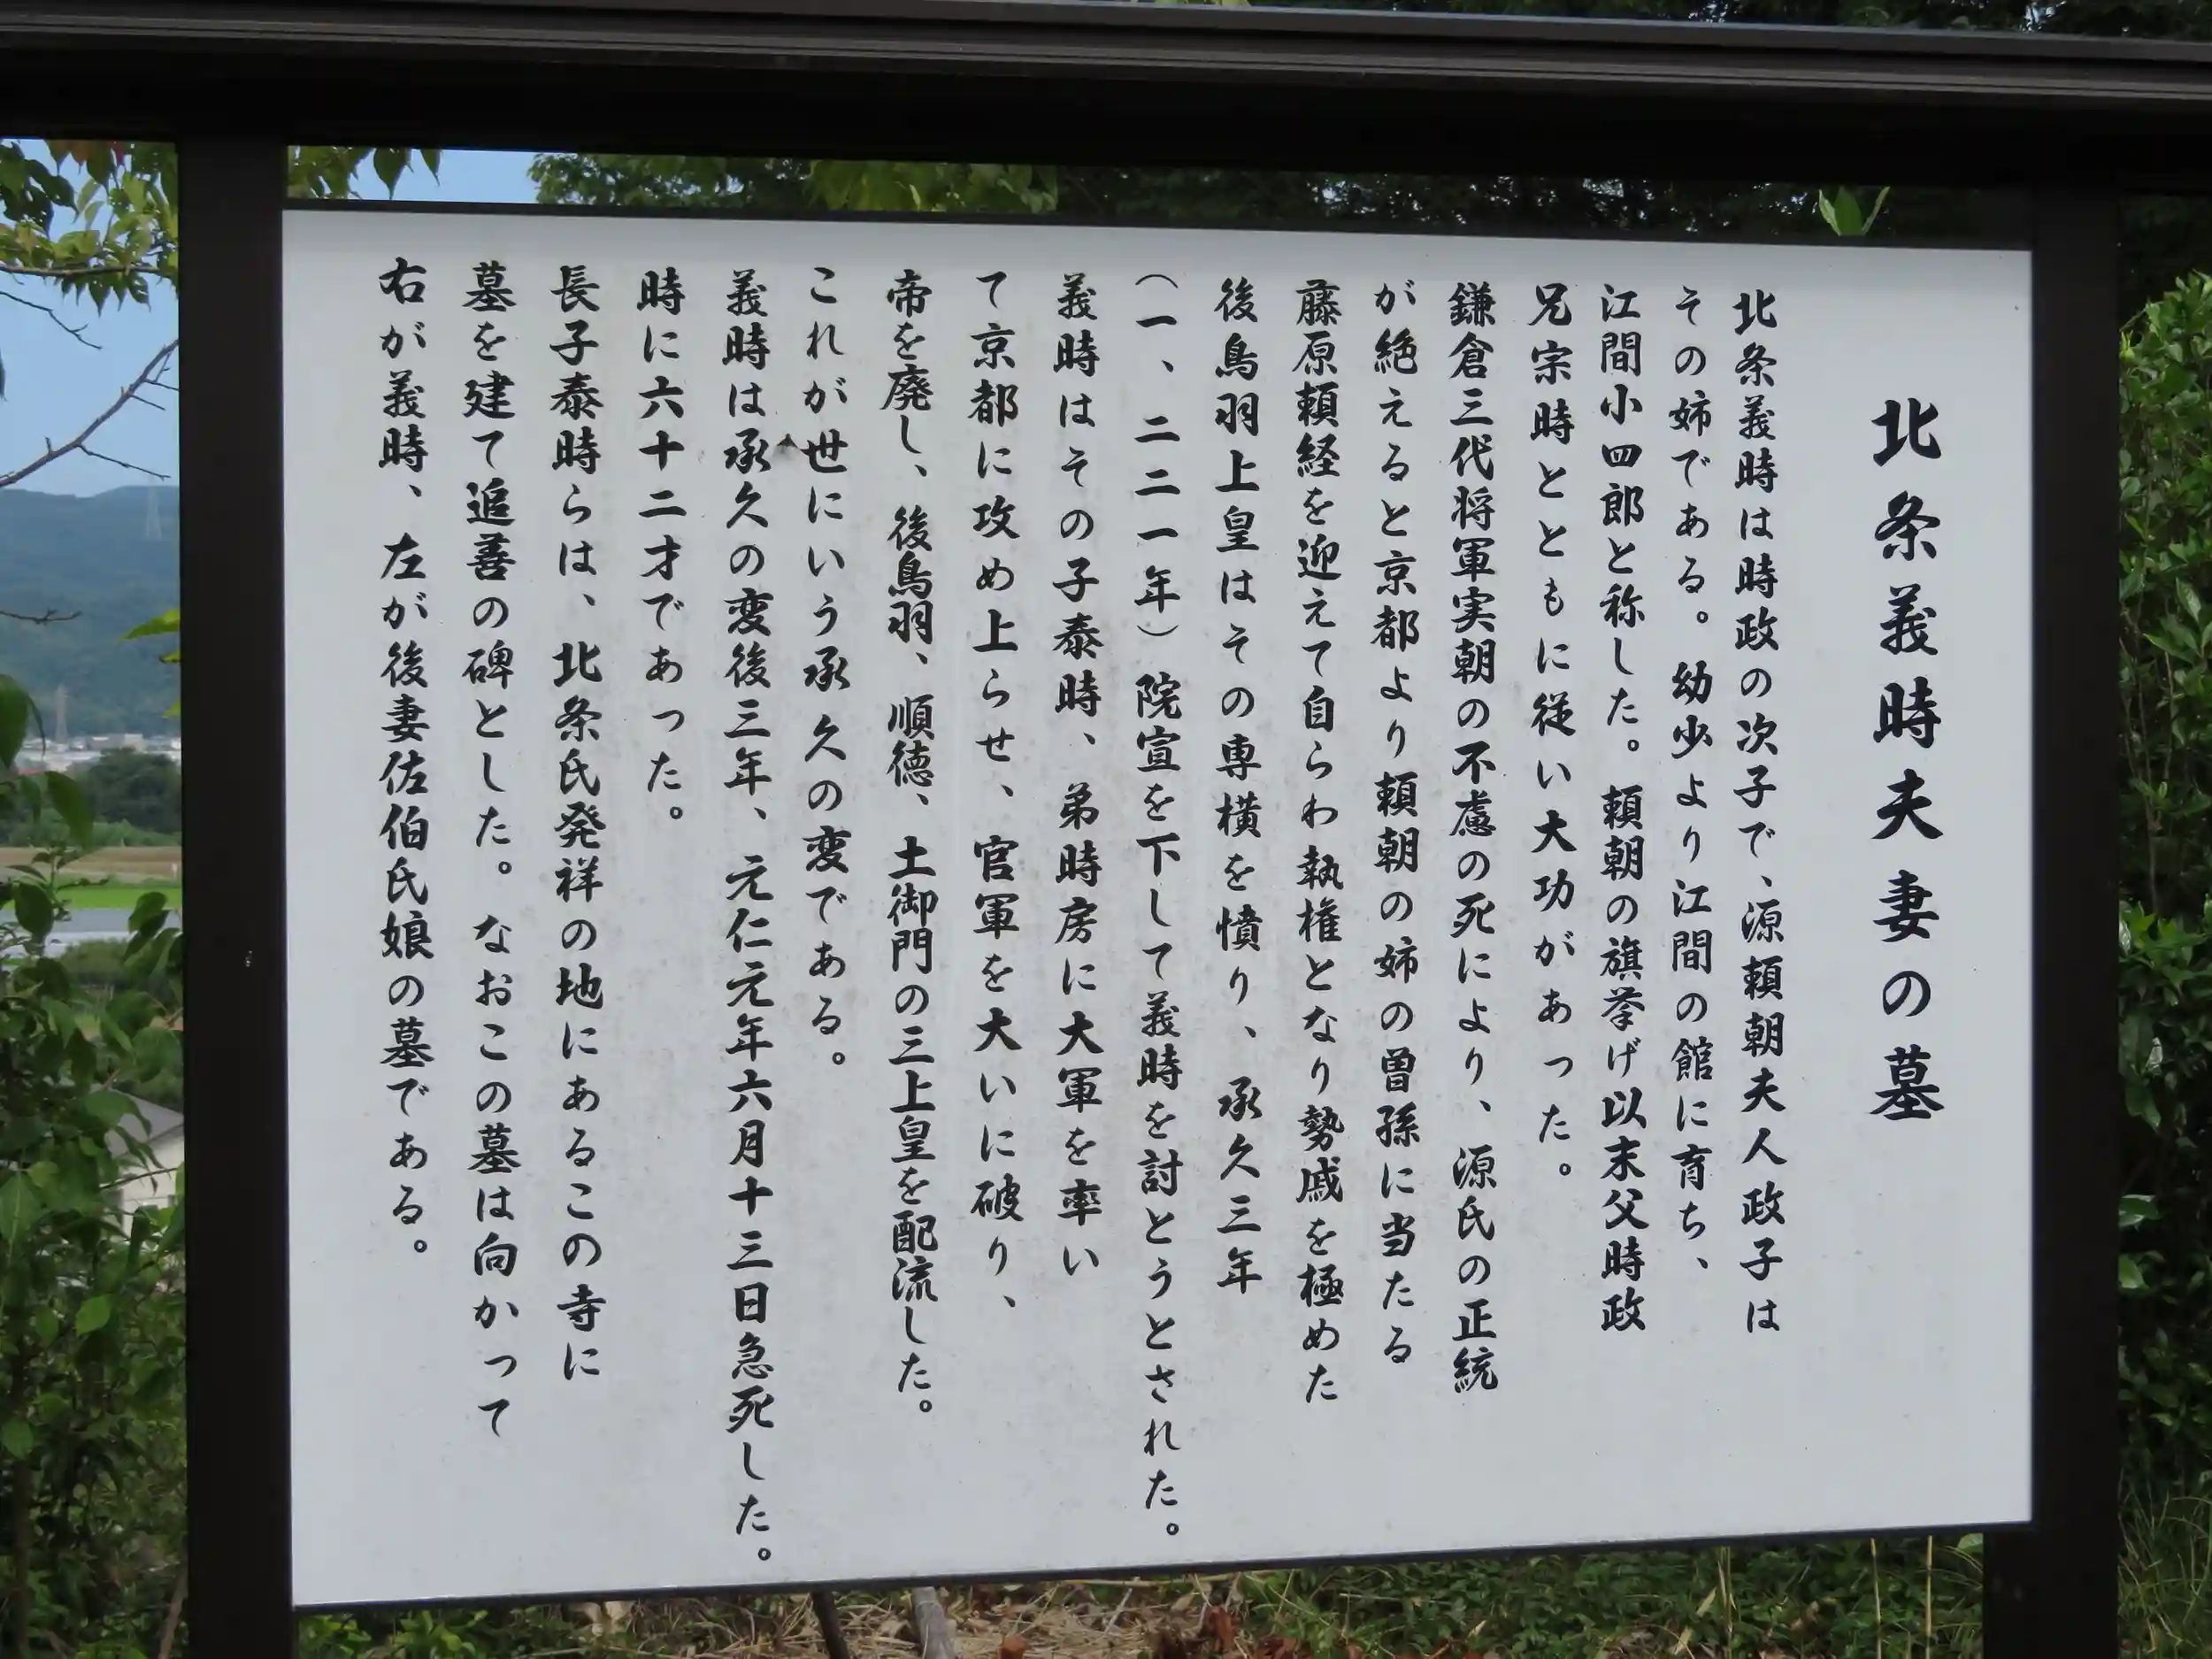 北条義時夫妻の墓
北条義時は時政の次子で、源頼朝夫人政子は
その姉である。幼少より江間の館に育ち、
江間小四郎と称した。頼朝の旗挙げ以末父時政
兄宗時とともに従い大功があった。
鎌倉三代将軍実朝の不慮の死により、源氏の正統
が絶えると京都より頼朝の姉の曽孫に当たる
藤原頼経を迎えて自らわ執権となり勢戚を極めた
後鳥羽上皇はその専横を憤り、承久三年
（一、二二一年）院宣を下して義時を討とうとされた。
義時はその子泰時、弟時房に大軍を率い
て京都に攻め上らせ、官軍を大いに破り、
帝を廃し、後鳥羽、順徳、土御門の三上皇を配流した。
これが世にいう承久の変である。
義時は承久の変後三年、元仁元年六月十三日急死した。
時に六十二才であった。
長子泰時らは、北条氏発祥の地にあるこの寺に
墓を建て追善の碑とした。なおこの墓は向かって
右が義時、左が後妻佐伯氏娘の墓である。